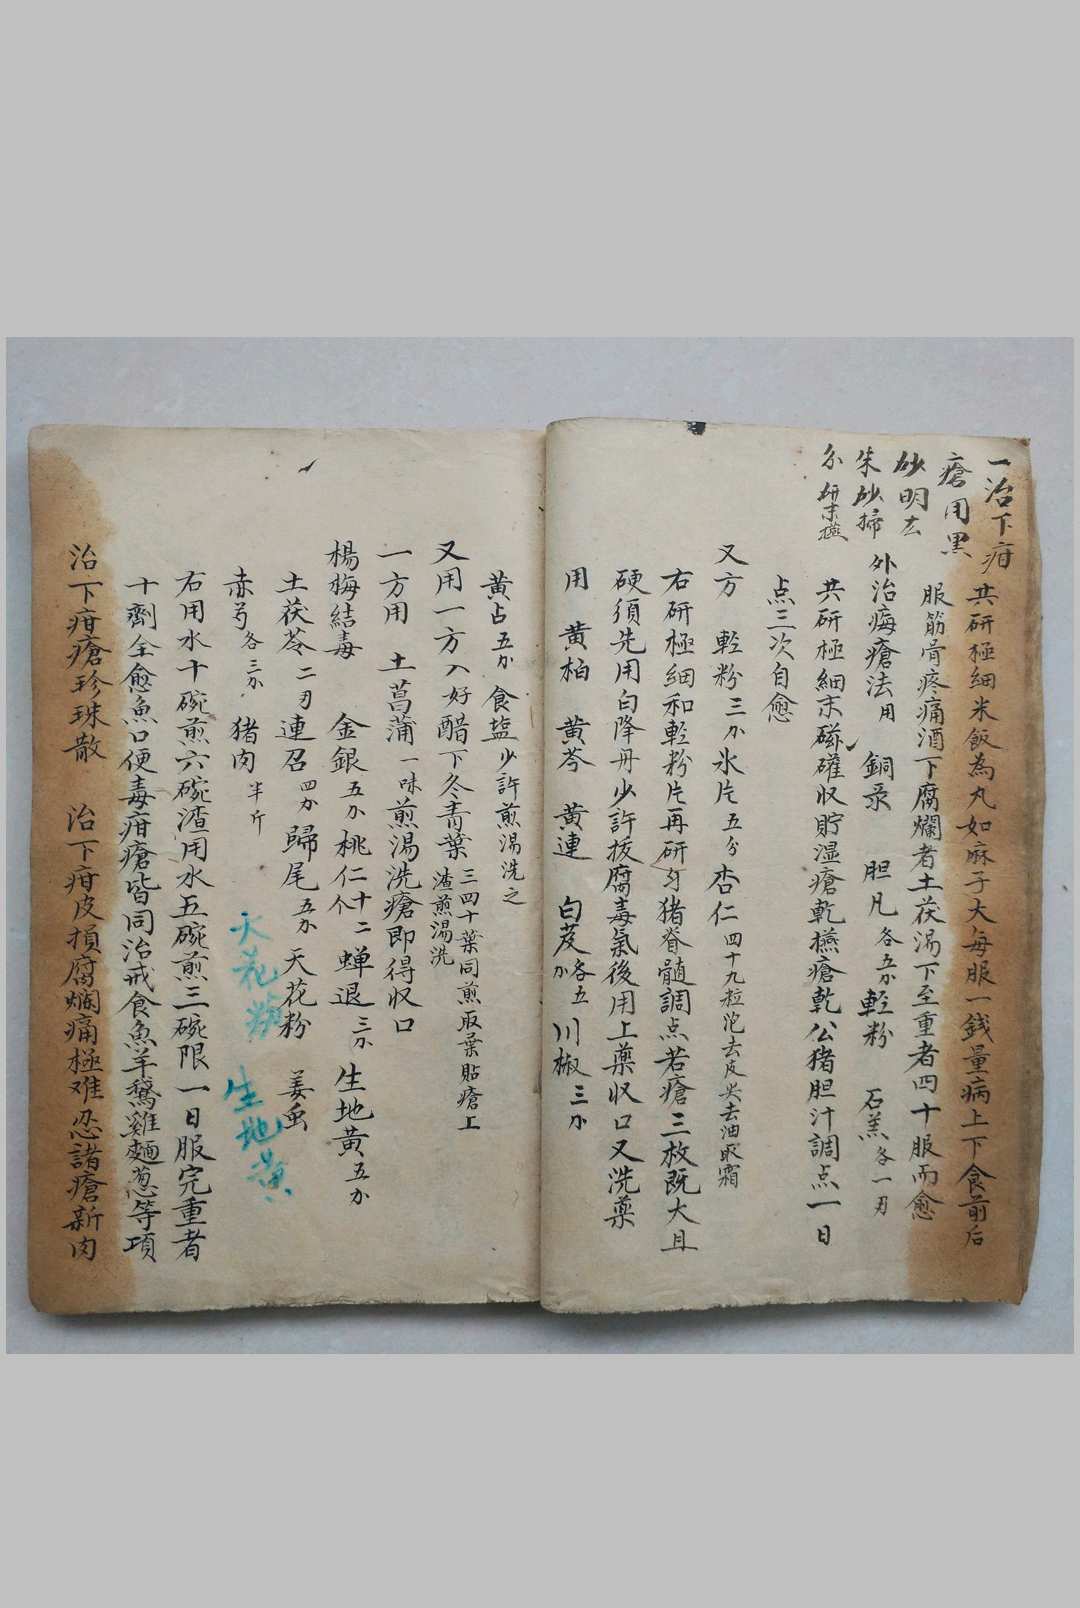 一治下疳
瘡用黑
砂明玄
朱砂掃
分研末摻
共研極細米飯為丸如麻子大每服一錢量病上下食前后
服筋骨疼痛酒下腐爛者土茯湯下至重者四十服而愈
外治痗瘡法用 銅彔 胆凡各五分 輊粉 石羔各一刃
共研極細末磁礶収貯湿瘡乾摻瘡乾公猪胆汁調点一日
点三次自愈
又方 輊粉三分 氷片五分 杏仁四十九粒泡去皮尖去油取霜
右研極細和輊粉片再研匀猪脊髓調点若瘡三枚既大且
硬須先用白降丹少許拔腐毒氣後用上藥収口又洗藥
用 黄柏 黄芩 黄連 白芨各五分 川椒三分
黄占五分 食塩少許煎湯洗之
又用一方入好醋下冬青葉三四十葉同煎取葉貼瘡上
渣煎湯洗
一方用 土菖蒲一味煎湯洗瘡即得収口
楊梅結毒 金銀五分 桃仁十二个 蝉退三分 生地黄五分
土茯苓二刃 連召四分 歸尾五分 天花粉 姜虫
赤弓各三分 猪肉半斤
天花粉 生地黄
右用水十碗煎六碗渣用水五碗煎三碗限一日服完重者
十劑全愈魚口便毒疳瘡皆同治戒食魚羊鵝雞麵葱等項
治下疳瘡珍珠散 治下疳皮損腐爛痛極难忍諸瘡新肉